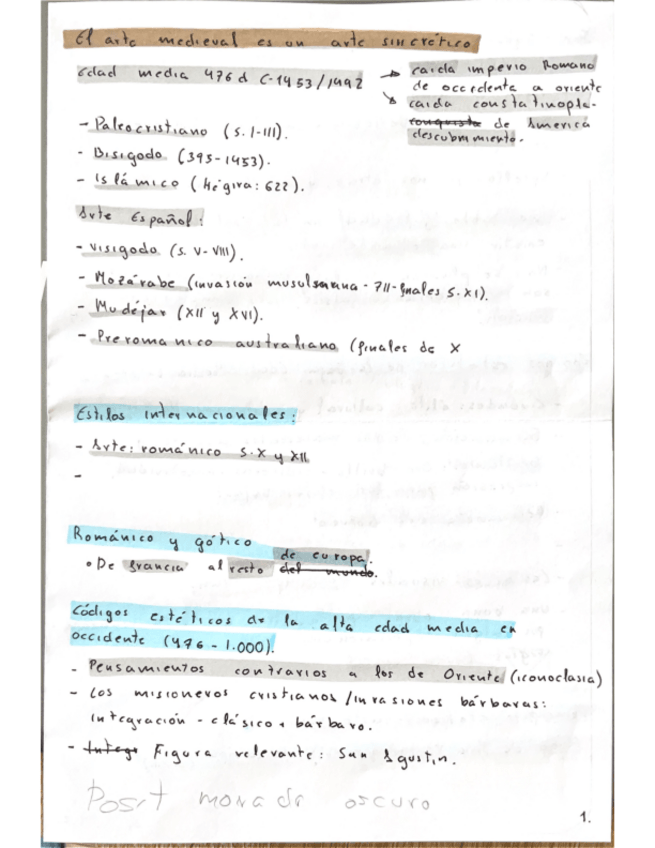 El arte medieval es un arte sincrético
Edad media 476 d C-1453/1492
caída imperio Romano
de occedente a oriente
caída constatinopla-
conquista de America
descubrimiento.
- Paleocristiano (s. I-III).
- Bisigodo (395-1453).
- Islámico (Hégira: 622).
Arte Español:
- Visigodo (s. V-VIII).
- Mozárabe (invasión musulmana - 711-finales s. XI).
- Mudéjar (XII y XVI).
- Preromanico australiano (finales de X
Estilos internacionales:
- Arte: románico s. X y XII
-
Románico y gótico
• De francia al resto del mundo. de europa.
Códigos estéticos de la alta edad media en
occidente (476 - 1.000).
- Pensamientos contrarios a los de Oriente (iconoclasia)
- Los misioneros cristianos / invasiones bárbaras:
integración - clásico + bárbaro.
- Integ Figura relevante: San Agustin.
Posit morado oscuro
1.